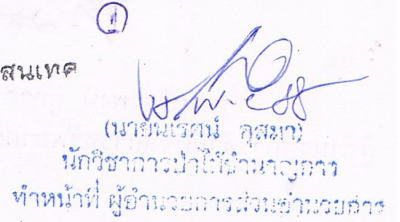 ①
สนเทศ
(นายนเรศน์ อุสมา)
นักวิชาการป่าไม้ชำนาญการ
ทำหน้าที่ ผู้อำนวยการส่วนอำนวยการ